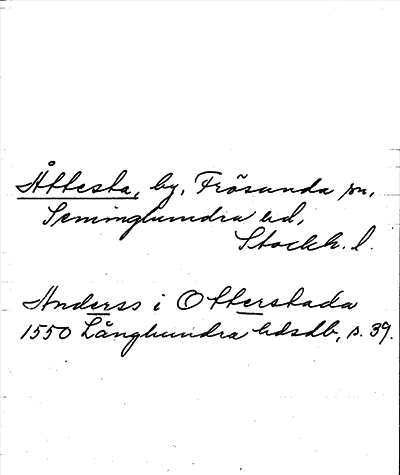 Åttesta, by, Frösunda sn,
Seminghundra hd,
Stockh. l.
Anderss i Otterstada
1550 Långhundra hdsdb, s. 39.